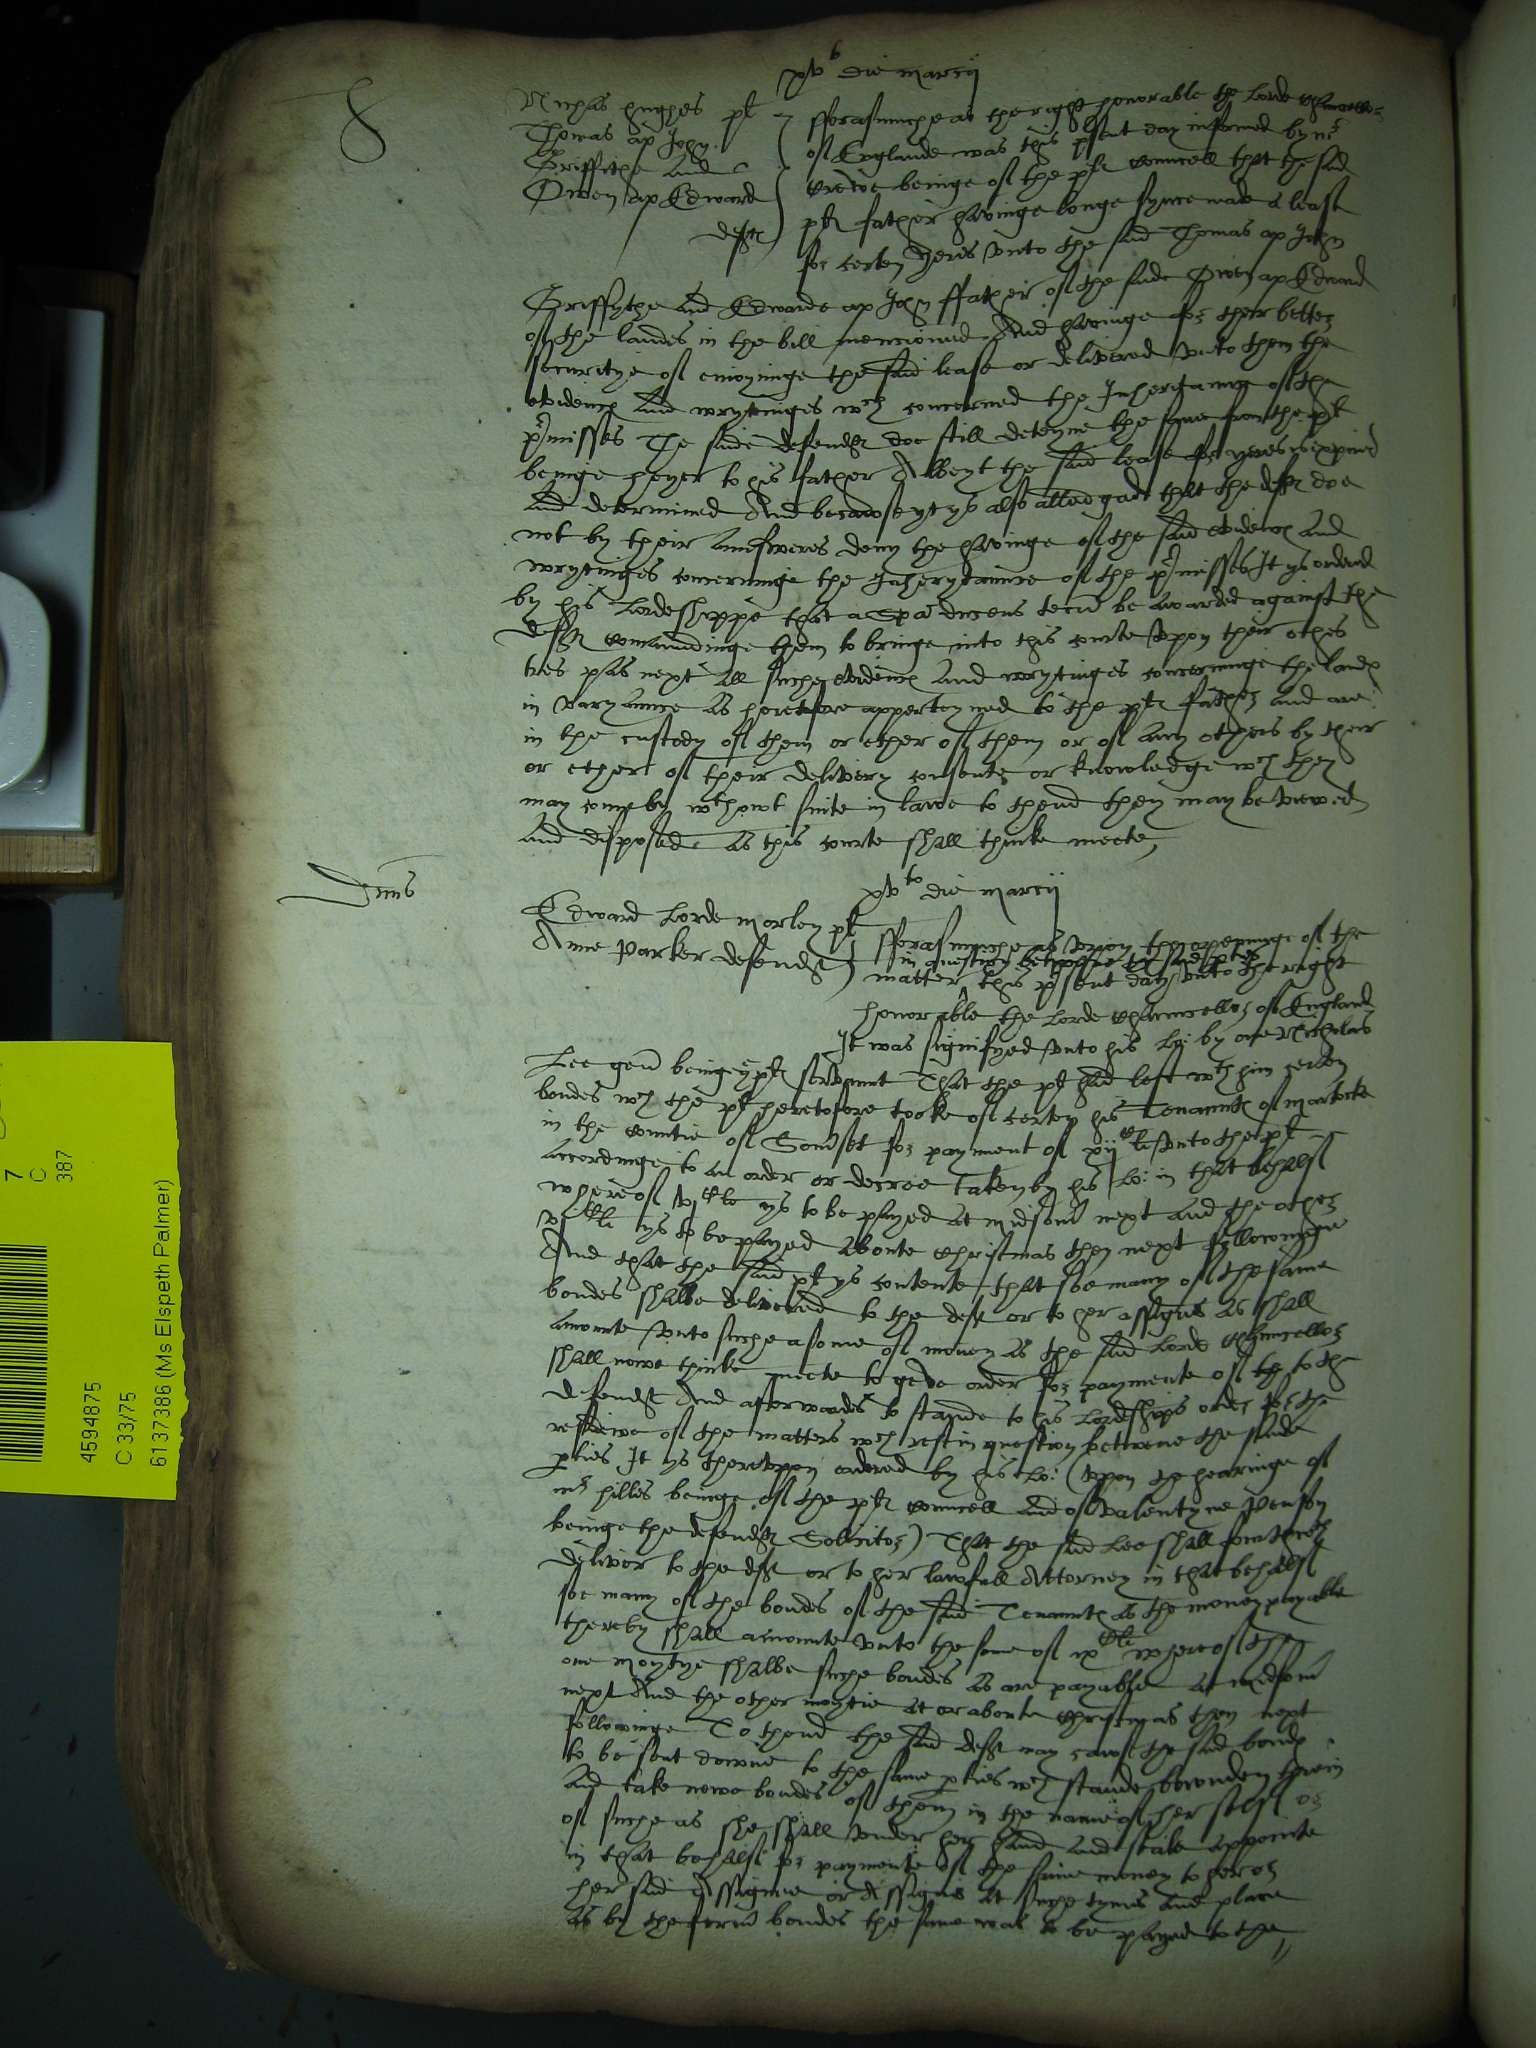 xvto die marcij
Nichas hughes plt
Thomas ap John
Griffithe and
Owen ap Edward
deftes
fforasmuche as the right honorable the Lorde Chauncellor
of Englande was this psent day informed by mr
beinge of the pltes councell that the said
pltes father havinge longe synce made a lease
for certen yeres unto the said Thomas ap John
Griffythe and Edwarde ap John ffather of the saide Owen ap Edward
of the landes in the bill mencioned And havinge for their better
securitye of enioyinge the said lease or delivered unto them the
evidences and wrytinges wch concerned the Inheritaunce of the
pmisses The saide defendtes doe still deteyne the same from the plt
beinge heyer to his father Albeyt the said lease for yeres is expired
And determined And because yt ys also alleadged that the deftes doe
not by their aunsweres deny the havinge of the said evidences and
wrytinges concerninge the Inherytaunce of the pmisses It ys ordered
by his Lordeshippe that a Spa ducens tecu be awarded against the
deftes comaundinge them to bringe into this courte uppon their othes
tres pas next all suche evidences and wrytinges concerninge the landes
in varyaunce as heretofore apperteyned to the pltes father and are
in the custody of them or ether of them or of any others by their
or ether of their delivery consente or knowledge wch they
may come by wthowt suite in lawe to thend they may be viewed
and disposed as this courte shall thinke meete
xvto die marcij
Edward Lorde Morley plt
Anne Parker defendt
fforasmuche as upon the openinge of the
in question betwene the said pties
matter this psent day unto the right
honorable the Lorde Chauncellor of England
It was signifyed unto his Lp: by one Nicholas
Lee gent beinge ye pltes servaunt That the plt had left wth him certen
bondes wch the plt heretofore tooke of certen his Tenauntes of Martocke
in the countie of Somset for payment of xijc li unto the plt
Accordinge to an order or decree taken by his Lo: in that behalf
whereof vjc li ys to be payed at midsomr next and the other
vjc li ys to be payed aboute Christmas then next followinge
And that the said plt ys contente that soe many of the same
bondes shalbe delivered to the deft or to her assignes as shall
amounte unto suche a some of money as the said Lorde Chauncellor
shall nowe thinke meete to geve order for paymente of to the
defendt And afterwardes to stande to his Lordeships order for the
residewe of the matters wch rest in question betwene the saide
pties It ys thereuppon ordered by his Lo: (uppon the hearinge of
mr hilles beinge of the pltes councell and of Valentyne Penson
beinge the defendtes Solicitor) That the said Lee shall forthwth
deliver to the deft or to her lawfull Attorney in that behalf
soe many of the bondes of the said Tenauntes as the money payable
thereby shall amounte unto the some of ixc li whereof the
one moytye shalbe suche bondes as are payable at midsomr
next And the other moytie at or aboute Christmas then next
followinge To thend the said deft may cause the said bondes
to be sent downe to the same pties wch stande bounden therein
And take newe bondes of them in the name of her self or
of suche as she shall under her hand and seale appointe
in that behalf for paymente of the same money to her or
her said Assignee or Assignes at suche tymes and place
as by the formr bondes the same was to be payed to the
4594875
C 33/75
6137386 (Ms Elspeth Palmer)
7
C
387